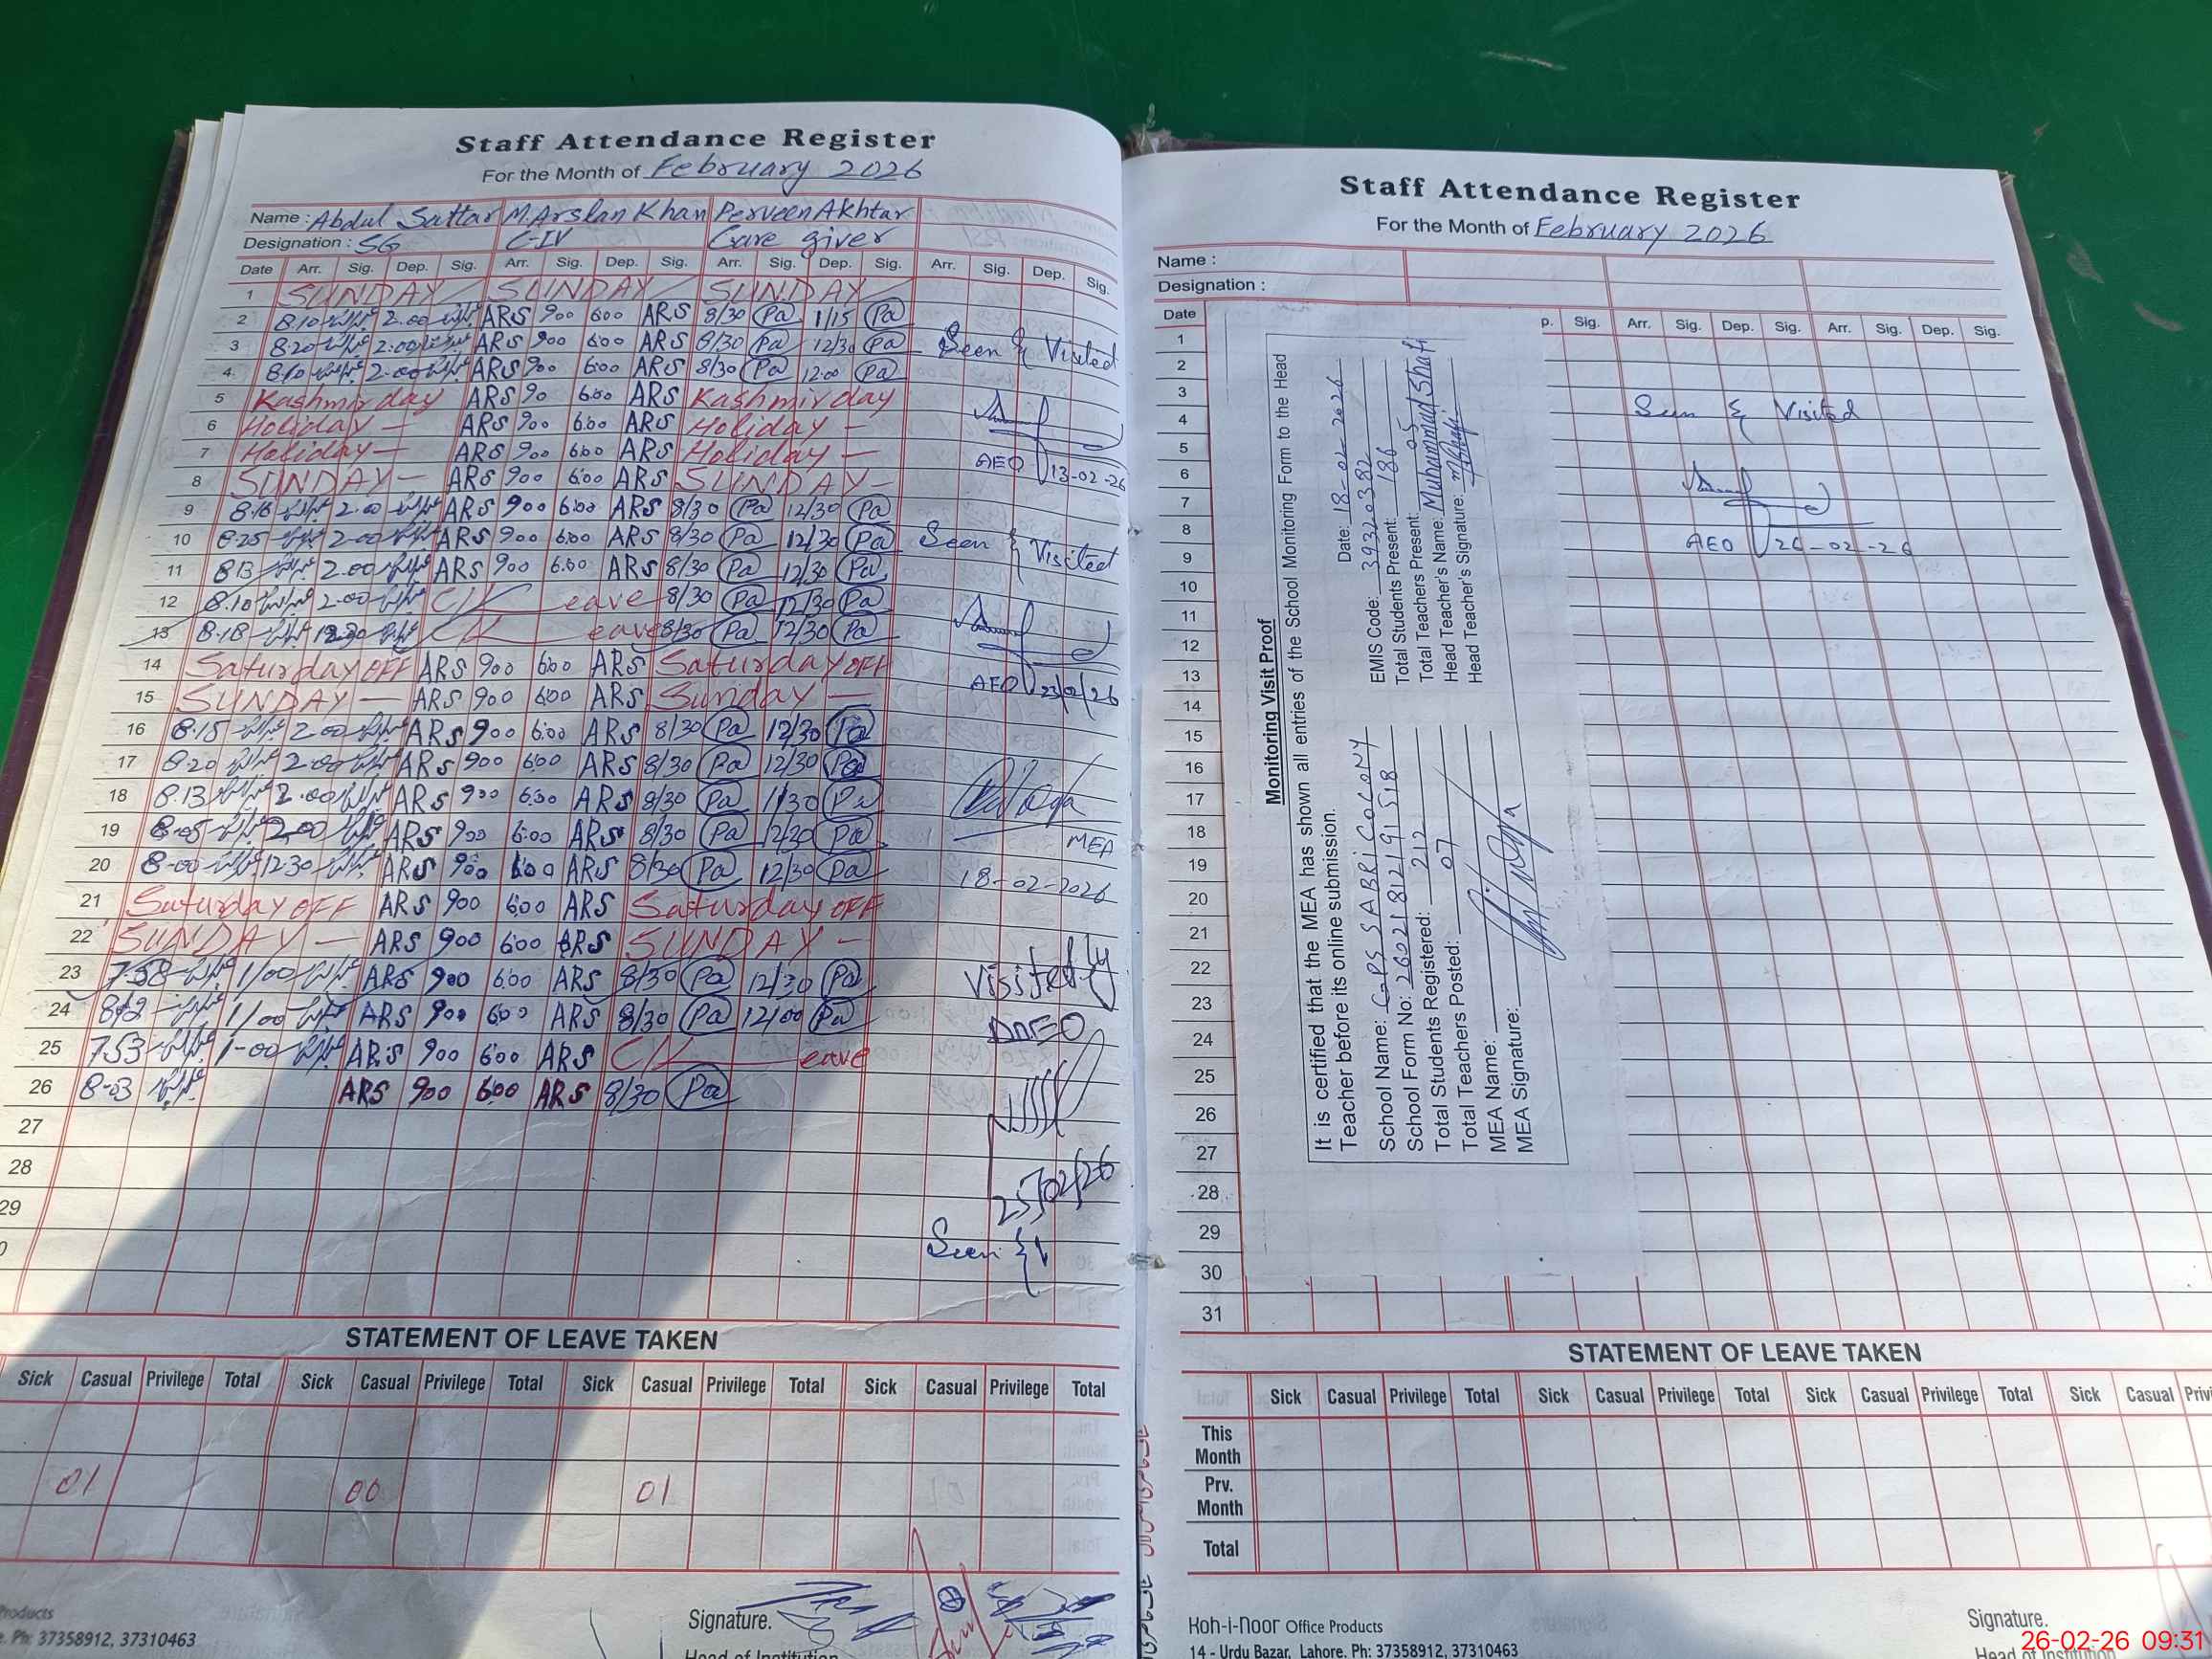 Staff Attendance Register
For the Month of February 2026
Name : Abdul Sattar M.Arslan Khan Perveen Akhtar
Designation : SG C-IV Care giver
Date Arr. Sig. Dep. Sig. Arr. Sig. Dep. Sig. Arr. Sig. Dep. Sig. Arr. Sig. Dep. Sig.
1 SUNDAY SUNDAY SUNDAY
2 8.10 2.00 ARS 900 600 ARS 8/30 Pa 1/15 Pa
3 8.20 2.00 ARS 900 600 ARS 8/30 Pa 12/30 Pa
4 8.10 2.00 ARS 900 600 ARS 8/30 Pa 12.00 Pa
5 Kashmir day ARS 90 600 ARS Kashmir day
6 Holiday — ARS 900 600 ARS Holiday —
7 Holiday — ARS 900 600 ARS Holiday —
8 SUNDAY — ARS 900 600 ARS SUNDAY —
9 8.16 2.00 ARS 900 600 ARS 8/30 Pa 12/30 Pa
10 8.25 2.00 ARS 900 600 ARS 8/30 Pa 12/30 Pa
11 8.13 2.00 ARS 900 6.00 ARS 8/30 Pa 12/30 Pa
12 8.10 2.00 C/Leave 8/30 Pa 12/30 Pa
13 8.18 12.30 C/Leave 8/30 Pa 12/30 Pa
14 Saturday OFF ARS 900 600 ARS Saturday OFF
15 SUNDAY — ARS 900 600 ARS Sunday —
16 8.15 2.00 ARS 900 600 ARS 8/30 Pa 12/30 Pa
17 8.20 2.00 ARS 900 600 ARS 8/30 Pa 12/30 Pa
18 8.13 2.00 ARS 900 600 ARS 8/30 Pa 1/30 Pa
19 8.05 2.00 ARS 900 6:00 ARS 8/30 Pa 12/30 Pa
20 8-00 12.30 ARS 900 600 ARS 8/30 Pa 12/30 Pa
21 Saturday OFF ARS 900 600 ARS Saturday OFF
22 SUNDAY — ARS 900 600 ARS SUNDAY —
23 7-58 1/00 ARS 900 600 ARS 8/30 Pa 12/30 Pa
24 1/00 ARS 900 600 ARS 8/30 Pa 12/00 Pa
25 753 1-00 ARS 900 600 ARS C/Leave
26 8-03 ARS 900 600 ARS 8/30 Pa
27
28
29
0
Seen & Visited
AEO 13-02-26
Seen & Visited
AEO 23/02/26
MEA
18-02-2026
Visited by
25/02/26
Seen &
STATEMENT OF LEAVE TAKEN
Sick Casual Privilege Total Sick Casual Privilege Total Sick Casual Privilege Total Sick Casual Privilege Total
01 00 01
Signature.
Head of Institution
Products
Ph: 37358912, 37310463
Staff Attendance Register
For the Month of February 2026
Name :
Designation :
Date p. Sig. Arr. Sig. Dep. Sig. Arr. Sig. Dep. Sig.
1
2
3
4
5
6
7
8
9
10
11
12
13
14
15
16
17
18
19
20
21
22
23
24
25
26
27
28
29
30
31
Monitoring Visit Proof
It is certified that the MEA has shown all entries of the School Monitoring Form to the Head
Teacher before its online submission. Date: 18-02-2026
School Name: GPS SABRI COLONY EMIS Code: 39320382
School Form No: 26021812191518 Total Students Present: 186
Total Students Registered: 212 Total Teachers Present: 05
Total Teachers Posted: 07 Head Teacher's Name: Muhammad Shafi
MEA Name: Head Teacher's Signature: MShafi
MEA Signature:
Seen & Visited
AEO 26-02-26
STATEMENT OF LEAVE TAKEN
Sick Casual Privilege Total Sick Casual Privilege Total Sick Casual Privilege Total Sick Casual Privi
This Month
Prv. Month
Total
Koh-i-Noor Office Products
14 - Urdu Bazar, Lahore. Ph: 37358912, 37310463
Signature.
Head of Institution
26-02-26 09:31